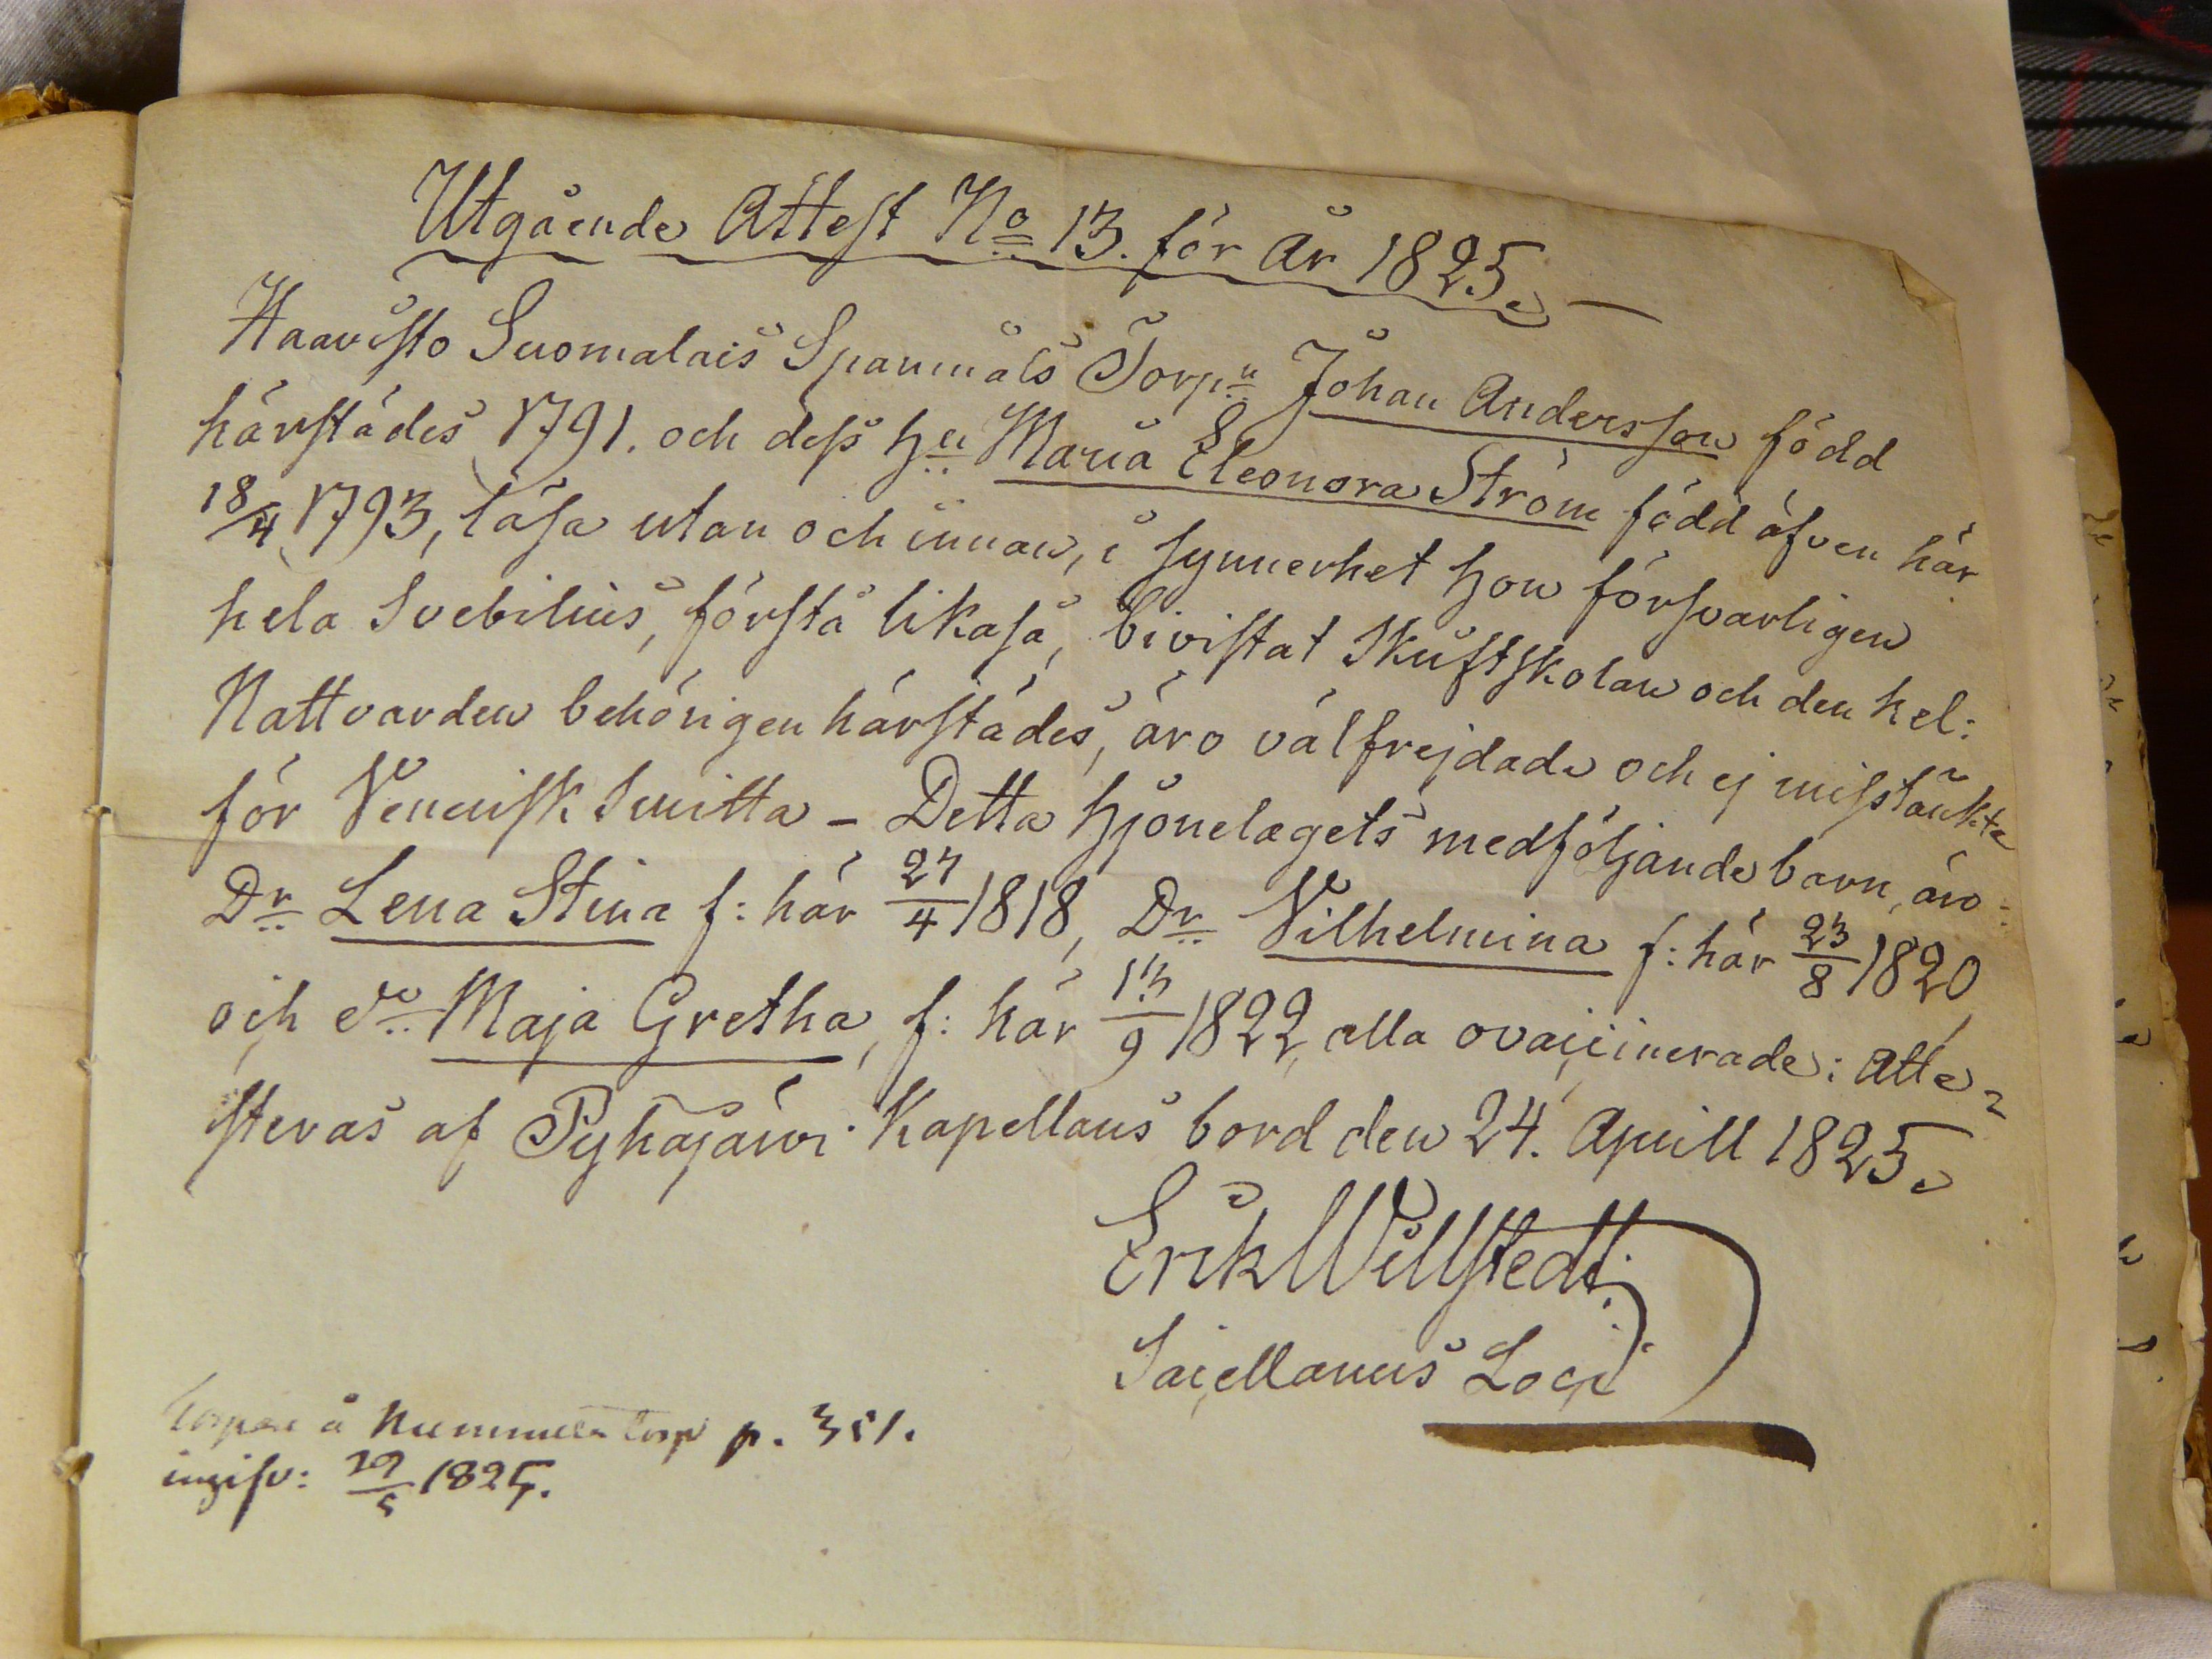 Utgående Attest No 13. för År 1825.
Haavisto Suomalais Spanmåls Torpn Johan Andersson född
härstädes 1791. och dess Hu Maria Eleonora Ström född äfven här
18/4 1793, läsa utan och innan, i synnerhet Hon försvarligen
hela Svebilius, förstå likaså, bivistat Skriftskolan och den hel:
Nattvarden behörigen härstädes, äro välfrejdade och ej misstänkte
för Venerisk Smitta - Detta Hjonelagets medföljande barn, äro:
Dr Lena Stina f: här 27/4 1818, Dr Vilhelmina f: här 23/8 1820
och Dr Maja Gretha, f: här 13/9 1822, alla ovaccinerade: Atte-
steras af Pyhäjärvi Kapellans bord den 24. Aprill 1825.
Erik Willstedt.
Sacellanus Loci
å Nummela torp p. 351.
ingifv: 29/5 1825.